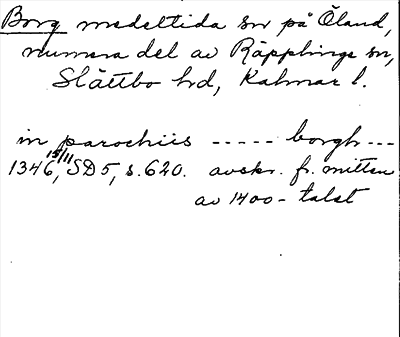 Borg medeltida sn på Öland,
numera del av Räpplinge sn,
Slättbo hd, Kalmar l.
in parochiis ----- borgh ---
1346 15/11, SD 5, s. 620. avskr. fr. mitten
av 1400-talet